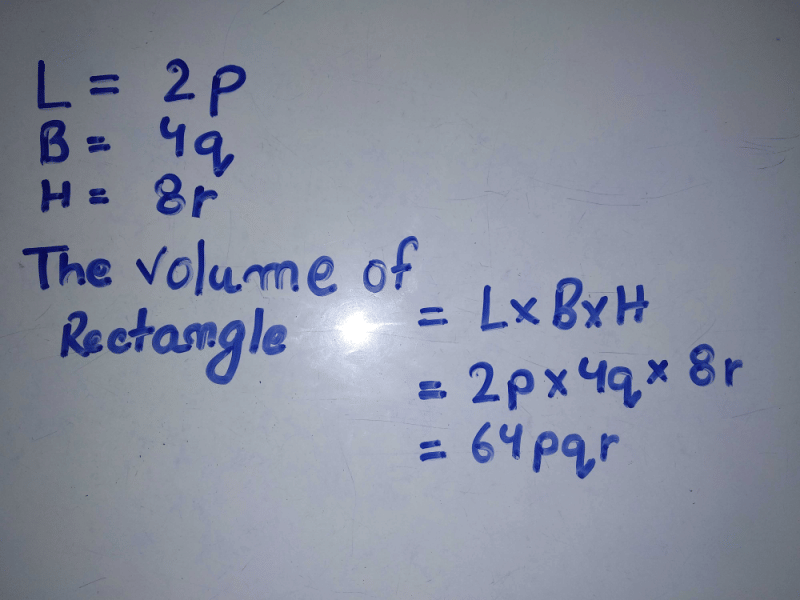 L = 2p
B = 4q
H = 8r
The volume of
Rectangle = L×B×H
= 2p×4q×8r
= 64pqr